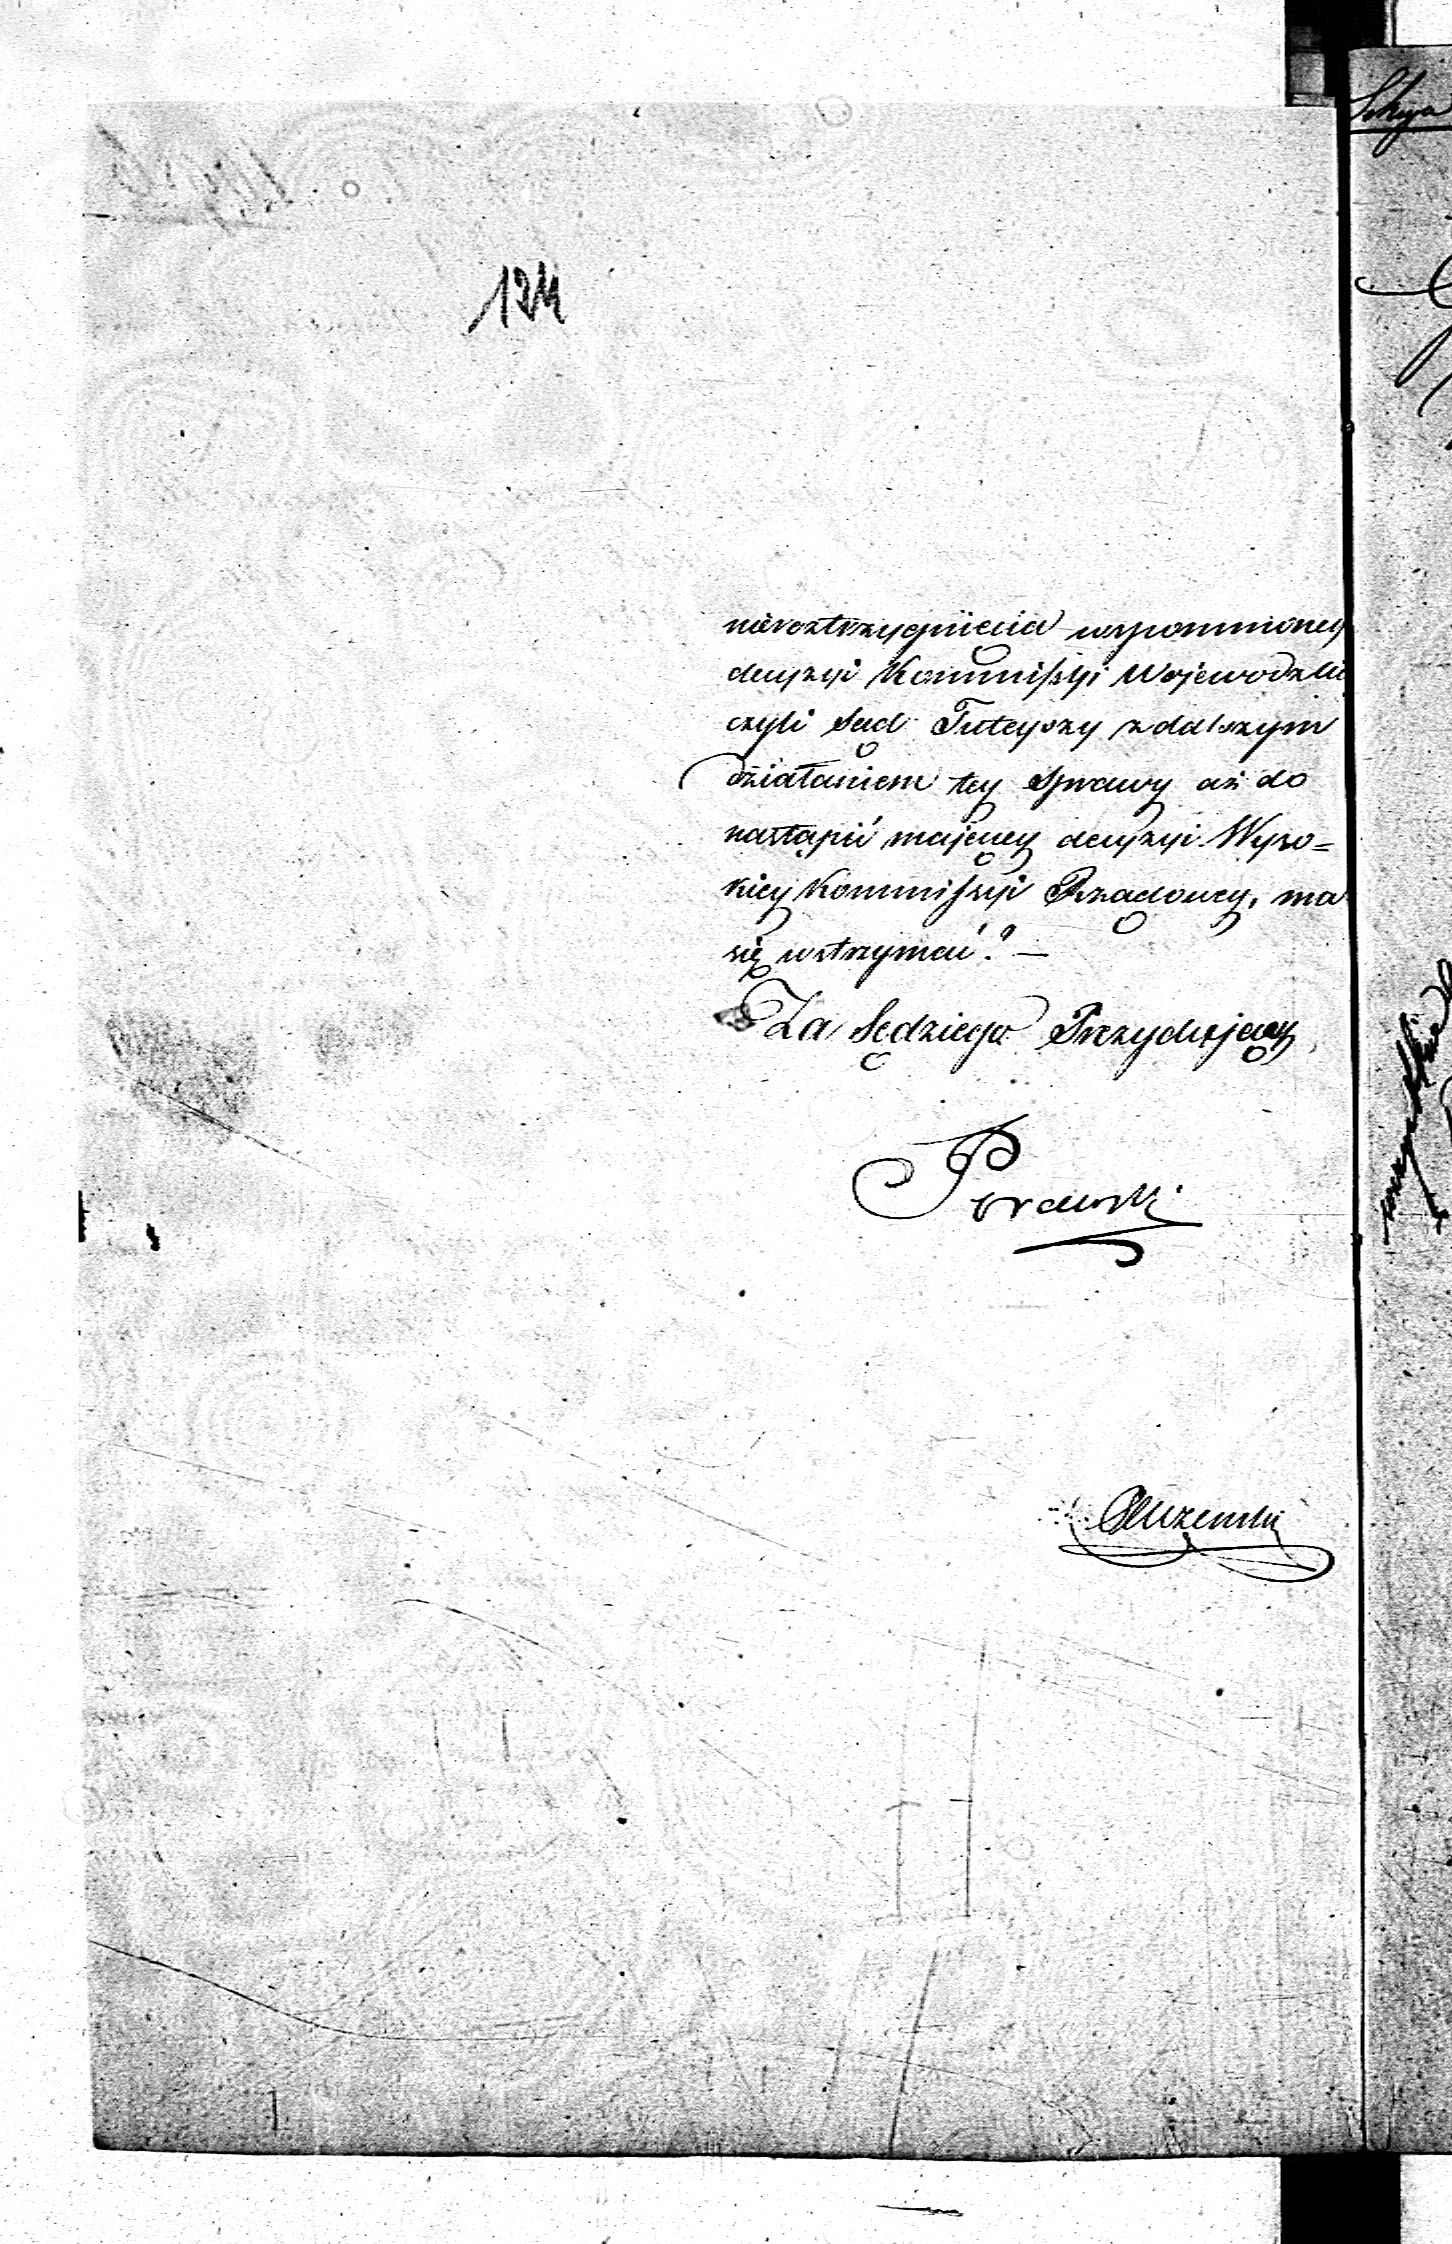 124
nieroztrzygnięcia wspomnioney
decyzyi Kommißyi Wojewodzki
czyli Sąd Tuteyszy z dalszym
działaniem tey Sprawy aż do
nastąpić maiącey decyzyi Wyso=
kiey Kommißyi Rządowey, ma
się wstrzymać? —
Za Sędziego Prezydującey